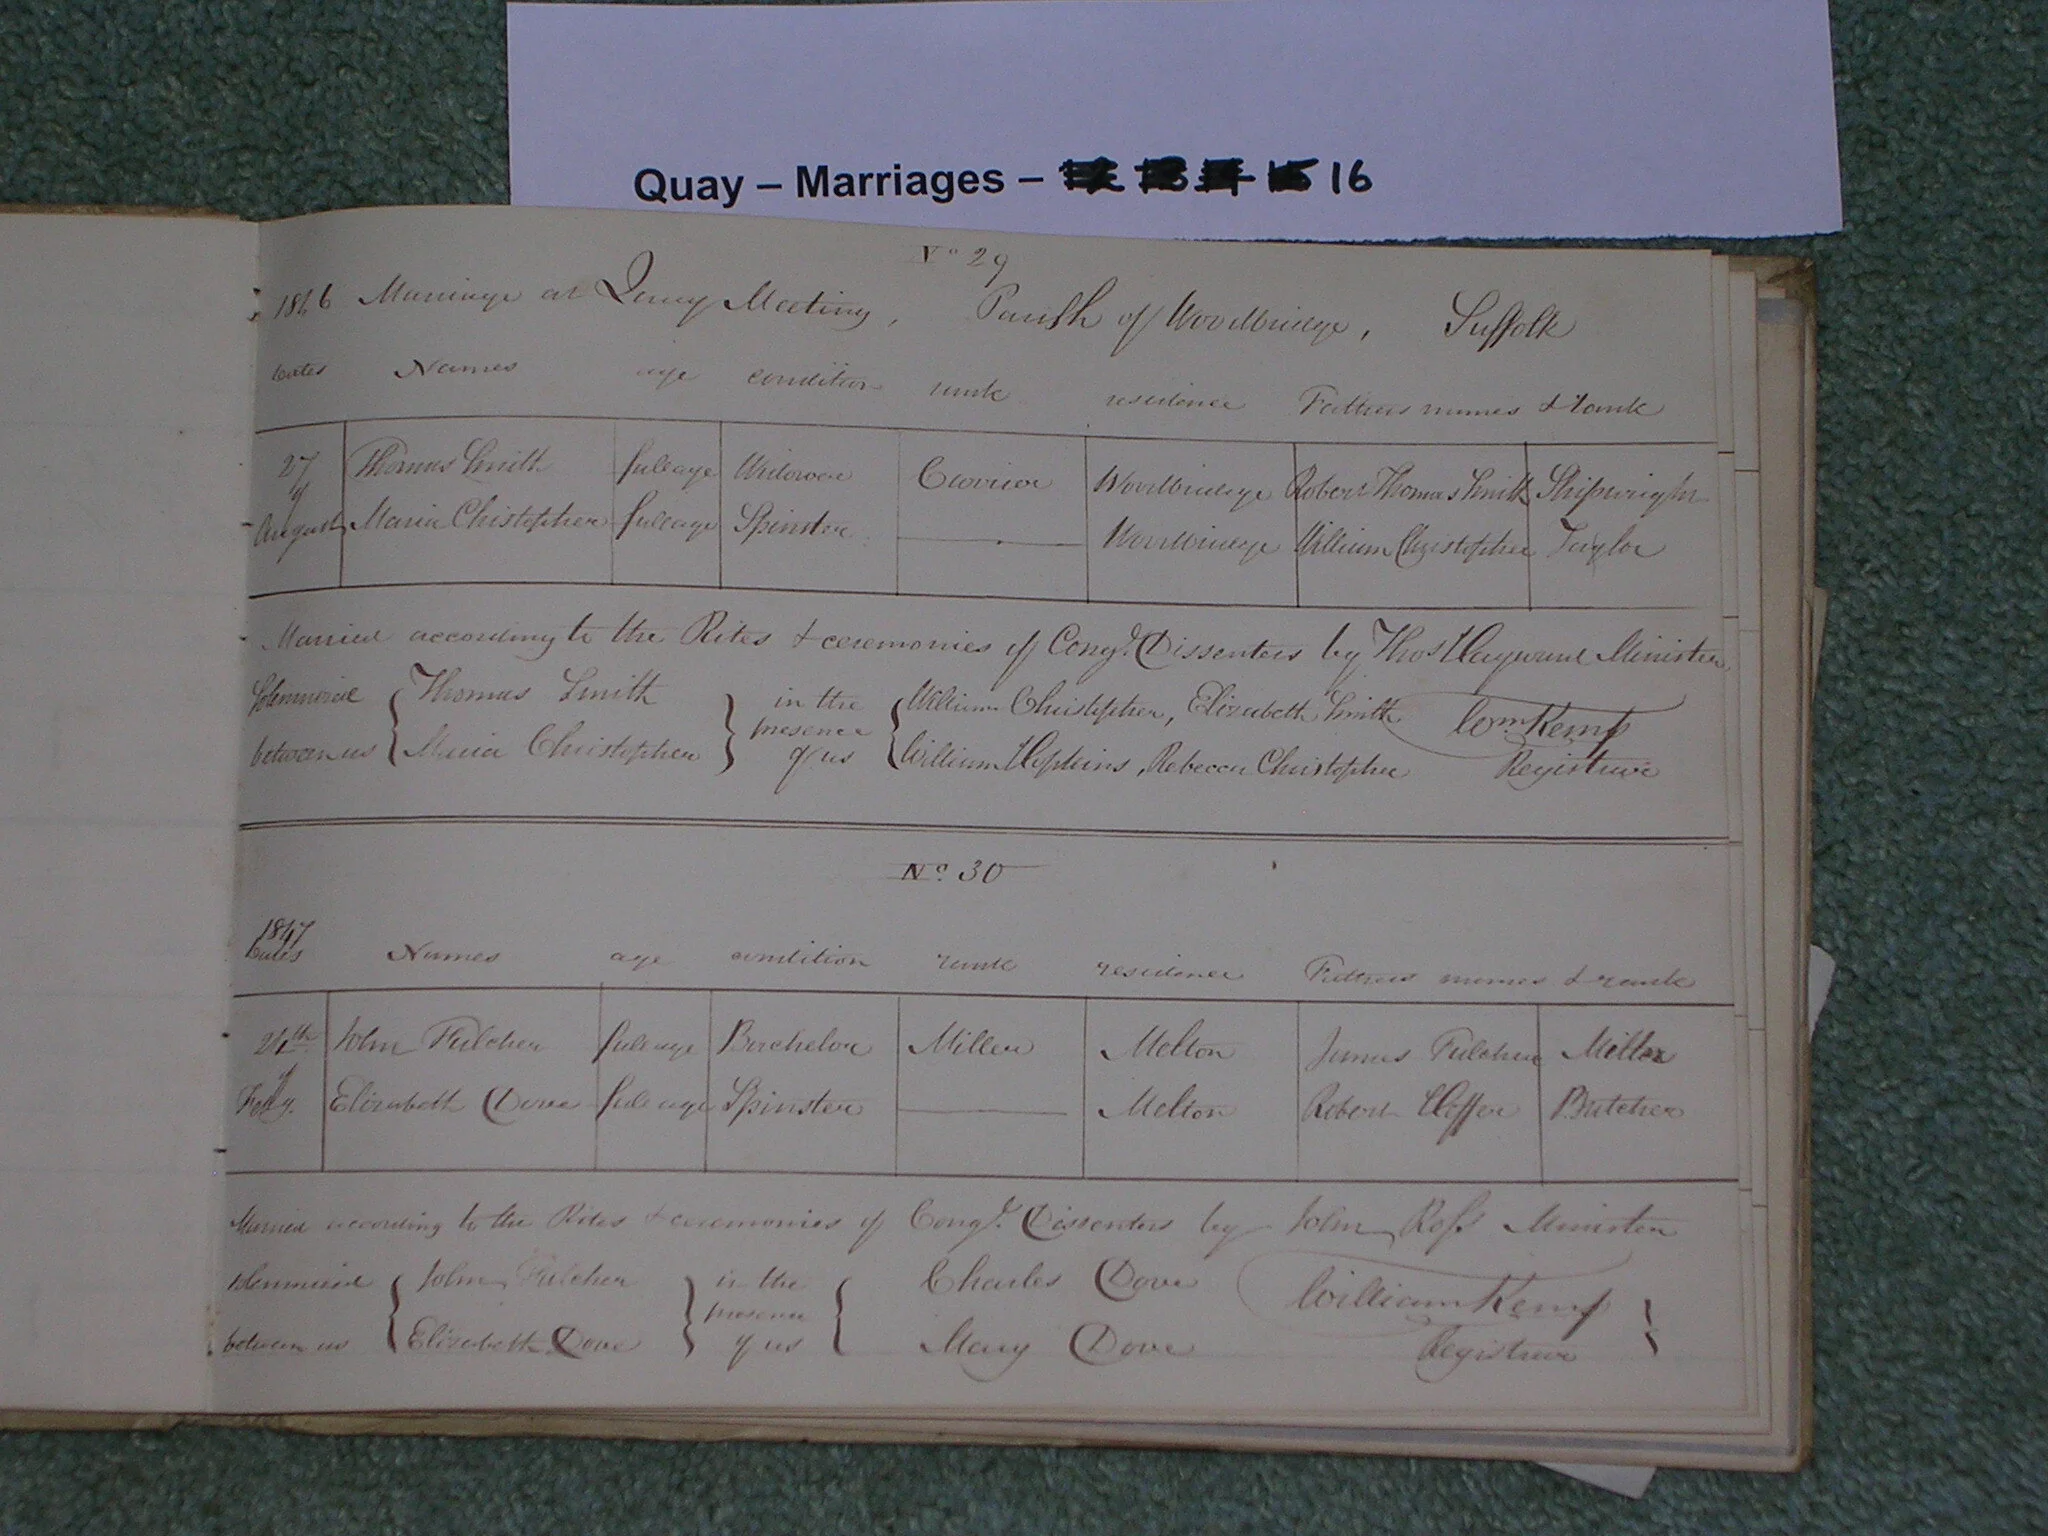 Quay – Marriages – 16
No 29
1846 Marriage at Quay Meeting, Parish of Woodbridge, Suffolk
Dates Names age condition rank residence Fathers names & rank
27 Thomas Smith full age Widower Woodbridge Robert Thomas Smith Shipwright
of
August Maria Chistopher full age Spinster Woodbridge William Christopher Taylor
Married according to the Rites & ceremonies of Congl. Dissenters by Thos Hayward Minister
Solemnized Thomas Smith in the William Christopher, Elizabeth Smith Wm. Kemp
between us Maria Christopher presence of us William Hopkins, Rebecca Christopher Registrar
No. 30
1847
Dates Names age condition rank residence Fathers names & rank
24th John Fulcher full age Bachelor Miller Melton James Fulcher Miller
of
Feby. Elizabeth Dove full age Spinster Melton Robert Butcher
Married according to the Rites & ceremonies of Congl. Dissenters by John Ross Minister
Solemnized John Fulcher in the Charles Dove William Kemp
between us Elizabeth Dove presence of us Mary Dove Registrar